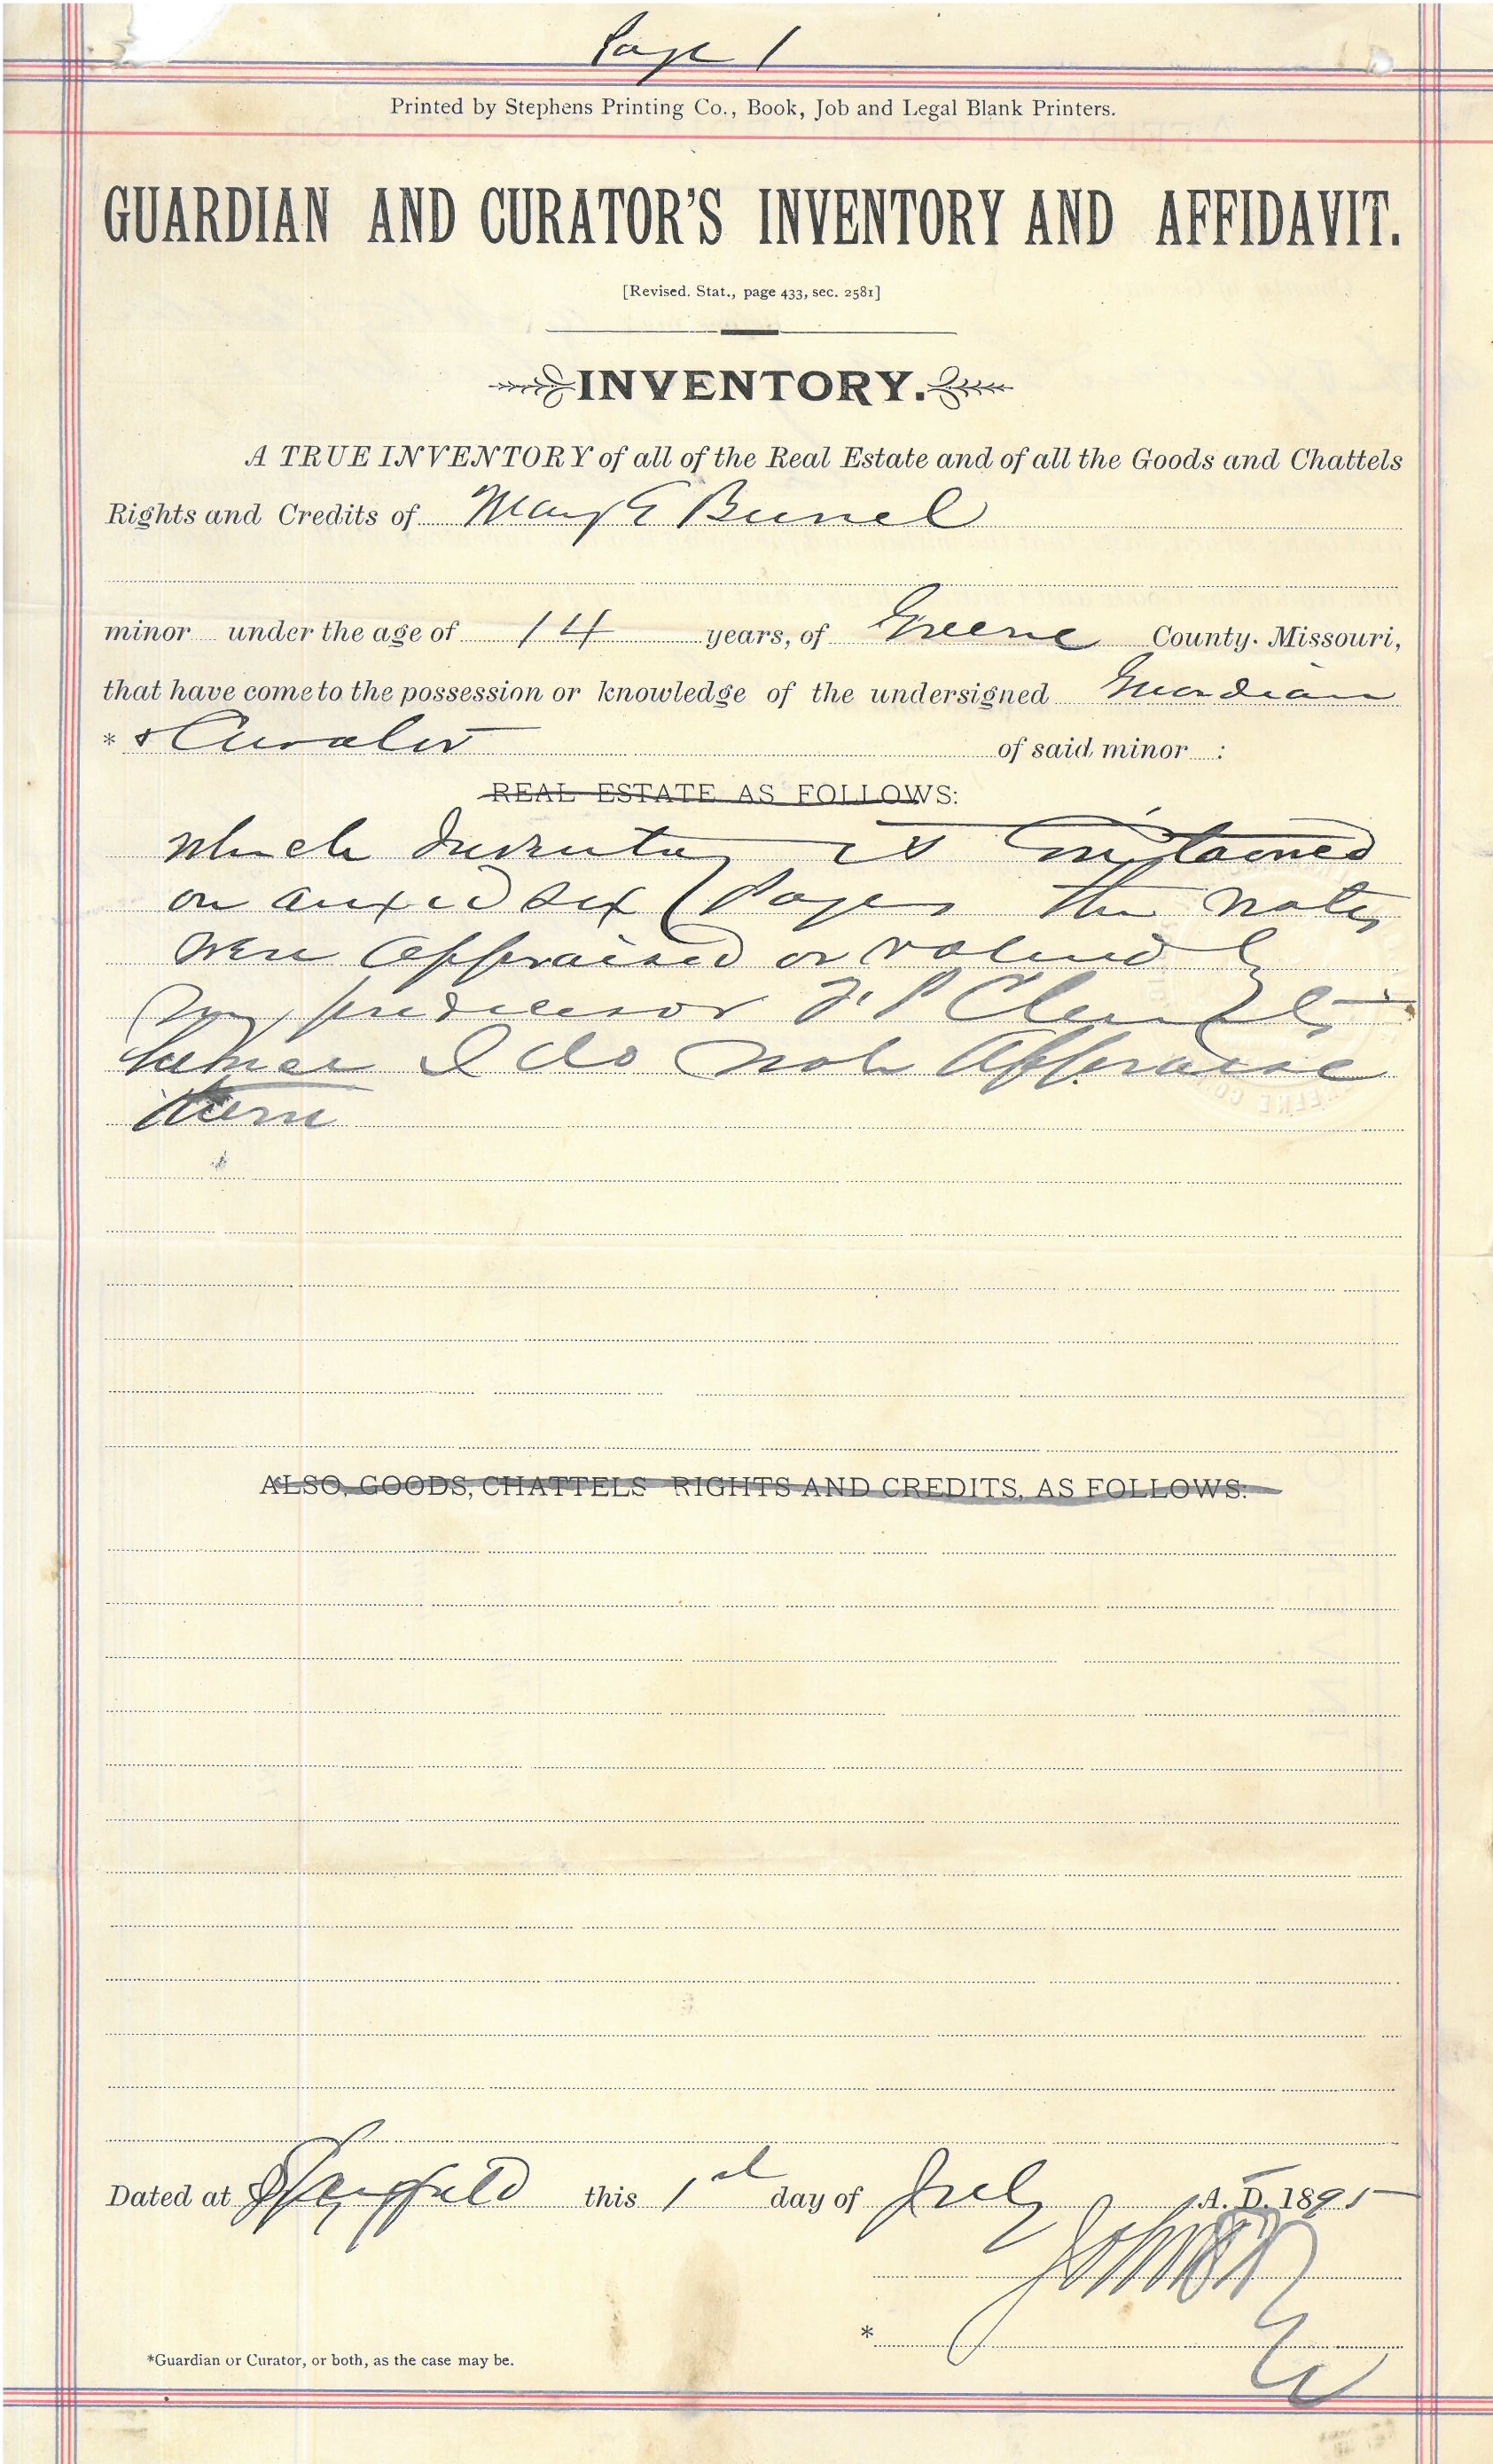 Page 1
Printed by Stephens Printing Co., Book, Job and Legal Blank Printers.
GUARDIAN AND CURATOR'S INVENTORY AND AFFIDAVIT.
[Revised. Stat., page 433, sec. 2581]
INVENTORY.
A TRUE INVENTORY of all of the Real Estate and of all the Goods and Chattels
Rights and Credits of Mary E
minor under the age of 14 years, of Greene County. Missouri,
that have come to the possession or knowledge of the undersigned Guardian
* & Curator of said minor :
REAL ESTATE AS FOLLOWS:
which Inventory is contained
on anxed six Pages the notes
were appraised or valued by
my predecessor
hence I do not appraise
them
ALSO, GOODS, CHATTELS RIGHTS AND CREDITS, AS FOLLOWS:
Dated at Springfield this 1st day of July A. D. 1895
*
*Guardian or Curator, or both, as the case may be.